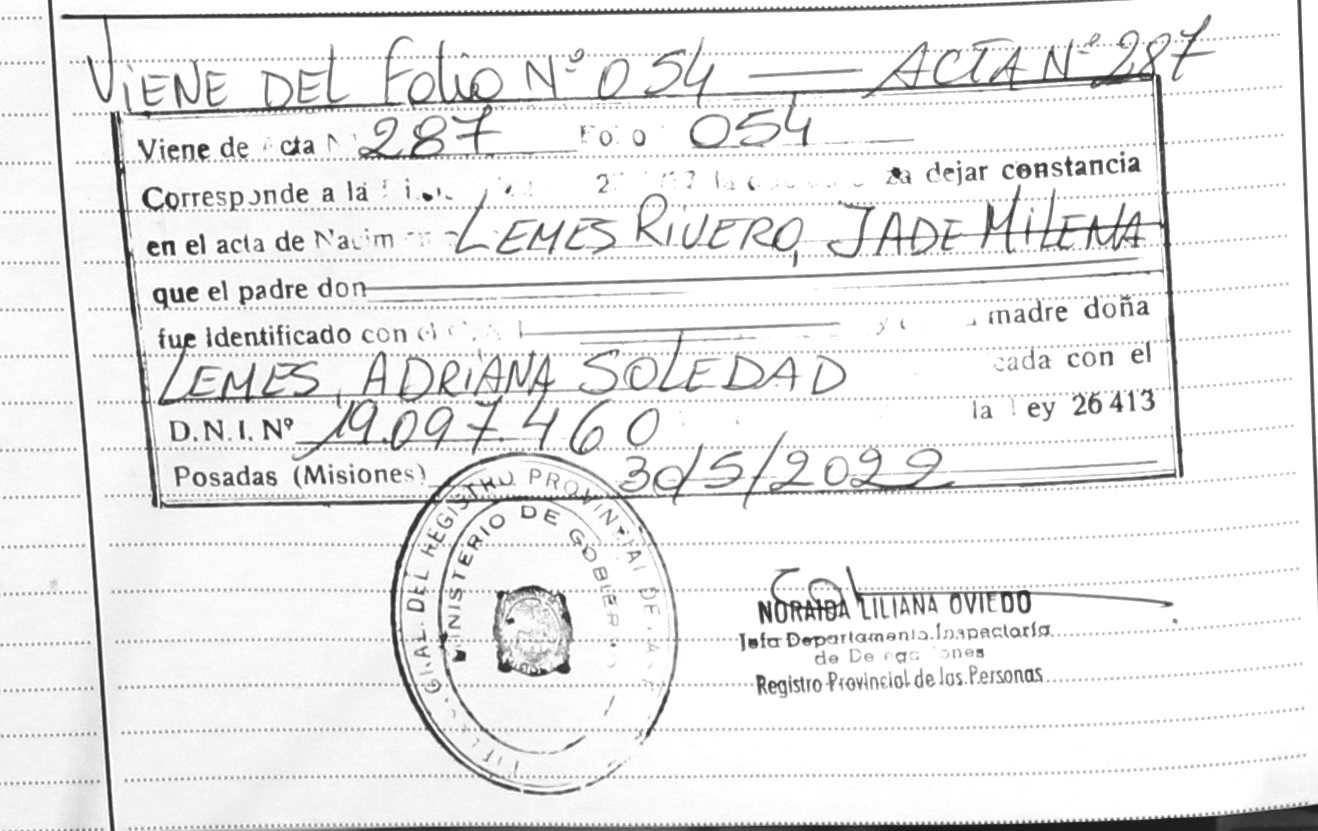 VIENE DEL Folio Nº 054 — ACTA Nº 287
Viene de cta N 287 Fo o 054
Corresponde a la dejar constancia
en el acta de Nacim LEMES RIVERO, JADE MILENA
que el padre don
fue identificado con el madre doña
LEMES, ADRIANA SOLEDAD cada con el
D.N.I. Nº 19.097.460 la ey 26413
Posadas (Misiones) 30/5/2022
GRAL. DEL REGISTRO PROVINCIAL DE
MINISTERIO DE GOBIER
NORAIDA LILIANA OVIEDO
Jefa Departamento Inspectoría
de De ega iones
Registro Provincial de las Personas